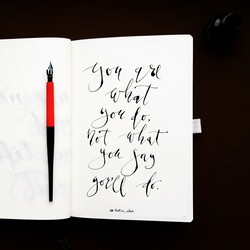 you are
what
you do.
not what
you say
you'll do.